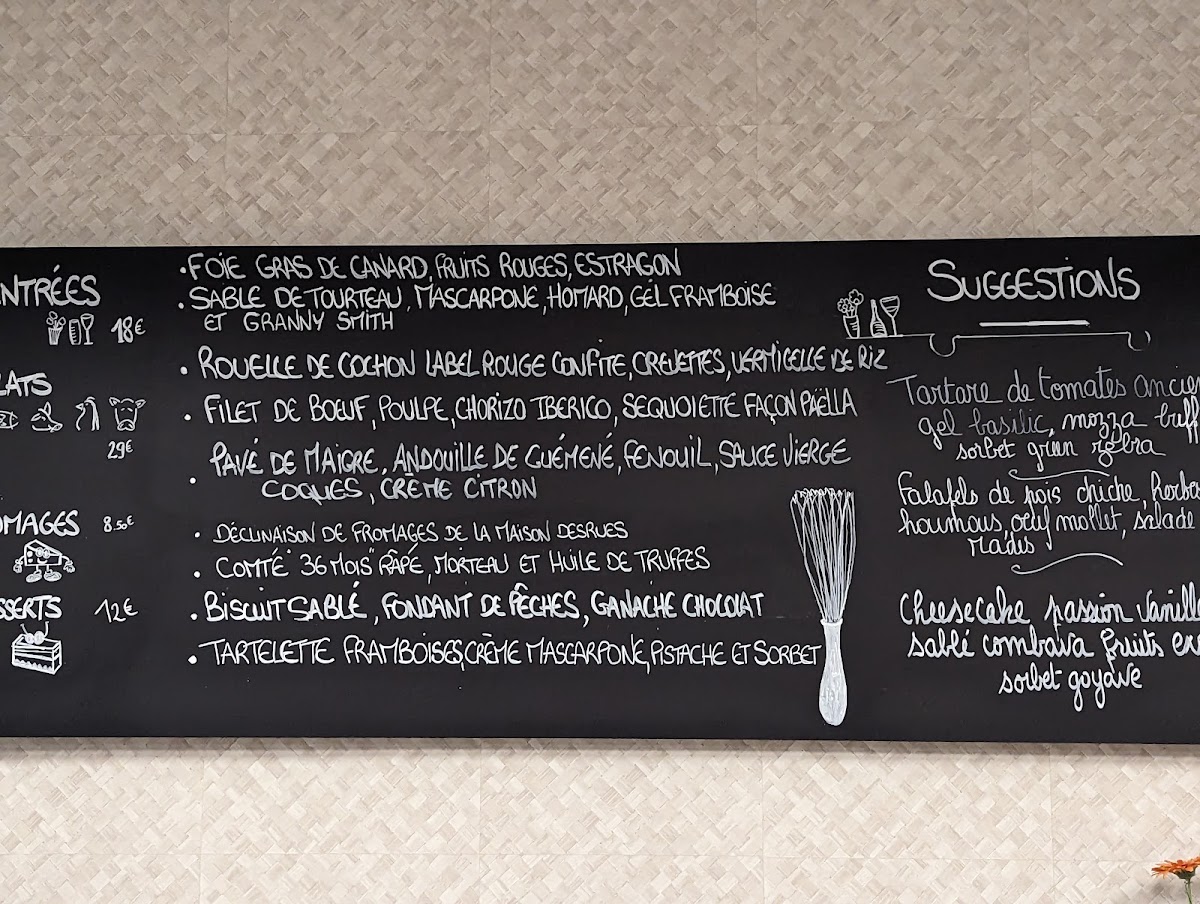 NTRÉES
18€
LATS
29€
OMAGES 8.50€
SSERTS 12€
•FOIE GRAS DE CANARD, FRUITS ROUGES, ESTRAGON
•SABLE DE TOURTEAU, MASCARPONE, HOMARD, GEL FRAMBOISE
ET GRANNY SMITH
• ROUELLE DE COCHON LABEL ROUGE CONFITE, CREVETTES, VERMICELLE DE RIZ
• FILET DE BOEUF, POULPE, CHORIZO IBERICO, SEQUOIETTE FAÇON PAËLLA
• PAVÉ DE MAIGRE, ANDOUILLE DE GUÉMENÉ, FENOUIL, SAUCE VIERGE
COQUES, CRÈME CITRON
• DÉCLINAISON DE FROMAGES DE LA MAISON DESRUES
• COMTÉ "36 MOIS" RÂPÉ, MORTEAU ET HUILE DE TRUFFES
• BISCUIT SABLÉ, FONDANT DE PÊCHES, GANACHE CHOCOLAT
• TARTELETTE FRAMBOISES, CRÈME MASCARPONE, PISTACHE ET SORBET
SUGGESTIONS
Tartare de tomates ancien
gel basilic, mozza buff
sorbet green zebra
Falafels de pois chiche, herbe
houmous, oeuf mollet, salade
radis
Cheesecake passion vanill
sablé combava fruits ex
sorbet goyave